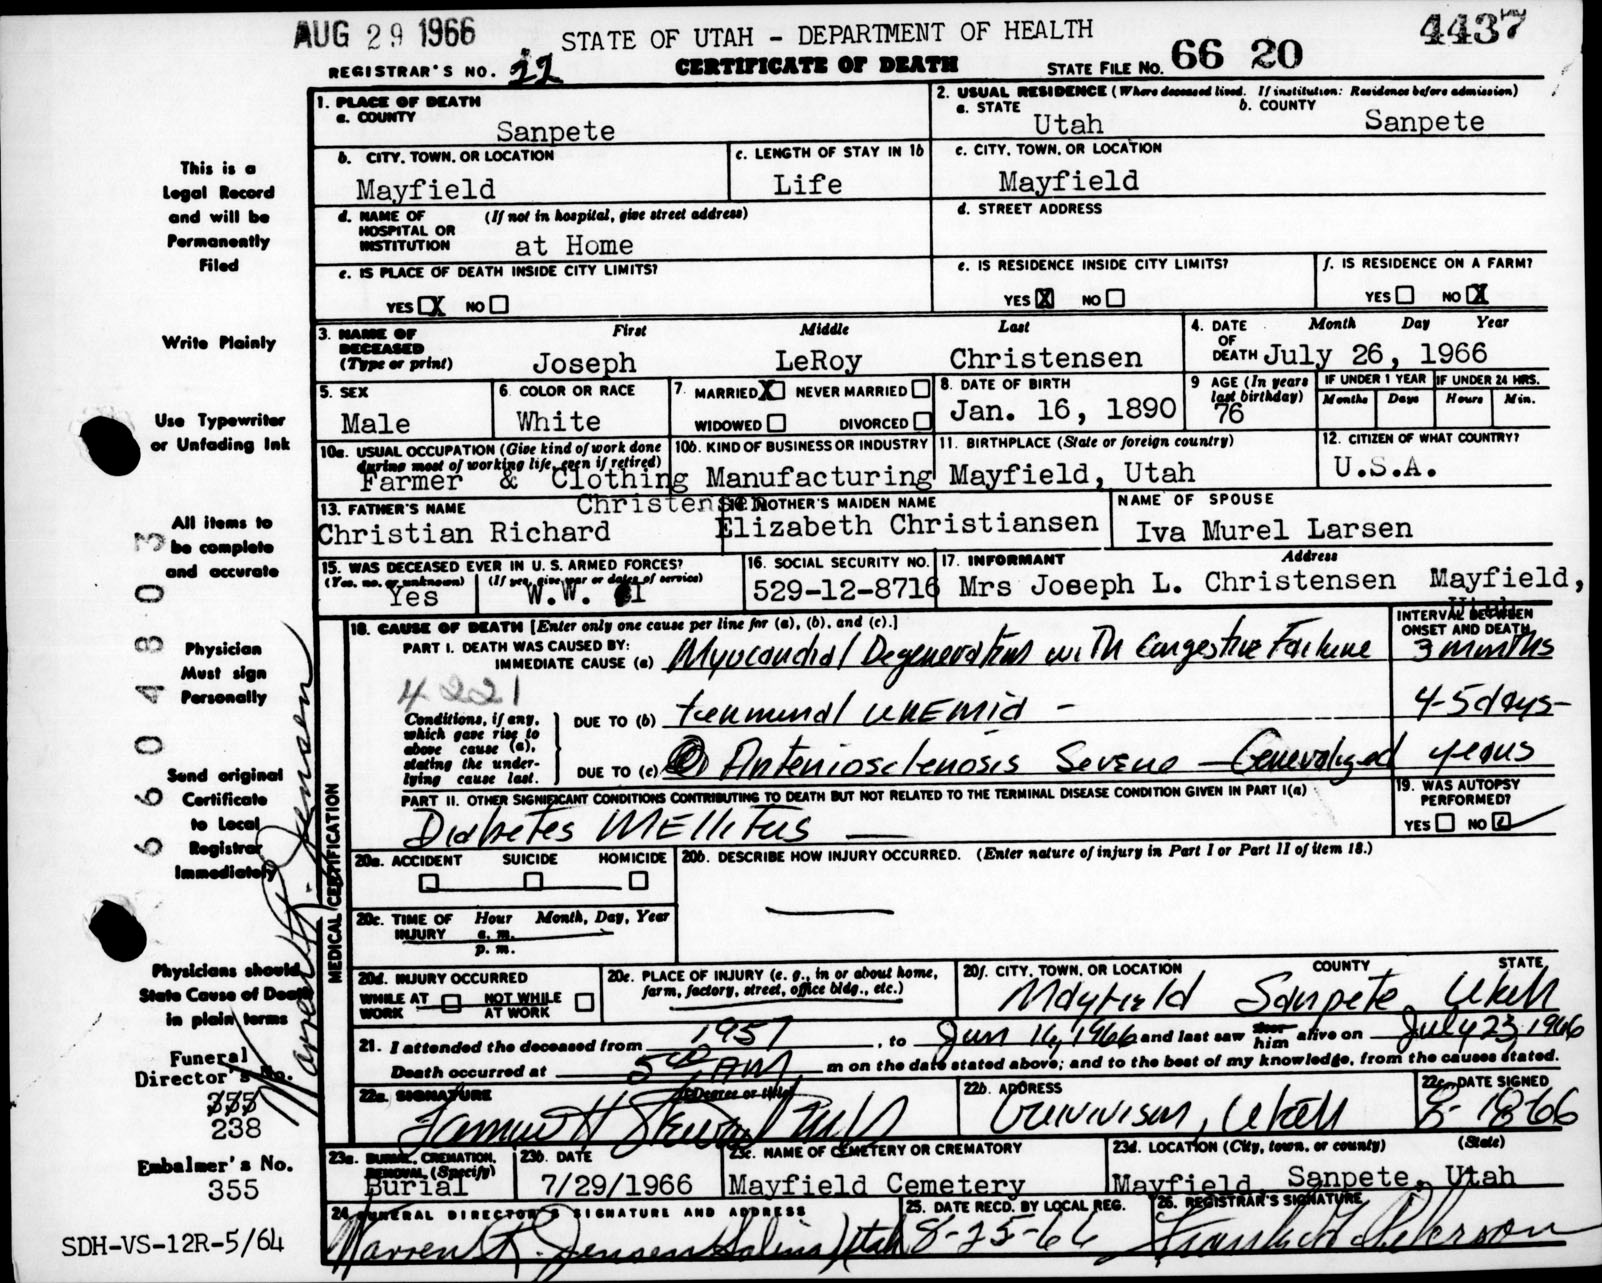 AUG 29 1966
STATE OF UTAH - DEPARTMENT OF HEALTH
4437
REGISTRAR'S NO. 22
CERTIFICATE OF DEATH
STATE FILE NO. 66 20
This is a
Legal Record
and will be
Permanently
Filed
Write Plainly
Use Typewriter
or Unfading Ink
All items to
be complete
and accurate
Physician
Must sign
Personally
Send original
Certificate
to Local
Registrar
Immediately
Physicians should
State Cause of Death
in plain terms
Funeral
Director's No.
355
238
Embalmer's No.
355
SDH-VS-12R-5/64
66 04803
1. PLACE OF DEATH
a. COUNTY
Sanpete
2. USUAL RESIDENCE (Where deceased lived. If institution: Residence before admission)
a. STATE Utah b. COUNTY Sanpete
b. CITY, TOWN, OR LOCATION
Mayfield
c. LENGTH OF STAY IN 1b
Life
c. CITY, TOWN, OR LOCATION
Mayfield
d. NAME OF HOSPITAL OR INSTITUTION (If not in hospital, give street address)
at Home
d. STREET ADDRESS
e. IS PLACE OF DEATH INSIDE CITY LIMITS?
YES X NO
e. IS RESIDENCE INSIDE CITY LIMITS?
YES X NO
f. IS RESIDENCE ON A FARM?
YES NO X
3. NAME OF DECEASED (Type or print)
First Middle Last
Joseph LeRoy Christensen
4. DATE OF DEATH Month Day Year
July 26, 1966
5. SEX
Male
6. COLOR OR RACE
White
7. MARRIED X NEVER MARRIED
WIDOWED DIVORCED
8. DATE OF BIRTH
Jan. 16, 1890
9 AGE (In years last birthday)
76
IF UNDER 1 YEAR
Months Days
IF UNDER 24 HRS.
Hours Min.
10a. USUAL OCCUPATION (Give kind of work done during most of working life, even if retired)
10b. KIND OF BUSINESS OR INDUSTRY
Farmer & Clothing Manufacturing
11. BIRTHPLACE (State or foreign country)
Mayfield, Utah
12. CITIZEN OF WHAT COUNTRY?
U.S.A.
13. FATHER'S NAME
Christian Richard Christensen
MOTHER'S MAIDEN NAME
Elizabeth Christiansen
NAME OF SPOUSE
Iva Murel Larsen
15. WAS DECEASED EVER IN U. S. ARMED FORCES?
(Yes, no, or unknown) (If yes, give war or dates of service)
Yes W.W. I
16. SOCIAL SECURITY NO.
529-12-8716
17. INFORMANT Address
Mrs Joseph L. Christensen Mayfield, Utah
MEDICAL CERTIFICATION
18. CAUSE OF DEATH [Enter only one cause per line for (a), (b), and (c).]
INTERVAL BETWEEN ONSET AND DEATH
PART I. DEATH WAS CAUSED BY:
IMMEDIATE CAUSE (a) Myocardial Degeneration with Congestive Failure 3 months
4221
Conditions, if any, which gave rise to above cause (a), stating the underlying cause last.
DUE TO (b) terminal uremia - 4-5 days-
DUE TO (c) Arteriosclerosis Severe - Generalized years
PART II. OTHER SIGNIFICANT CONDITIONS CONTRIBUTING TO DEATH BUT NOT RELATED TO THE TERMINAL DISEASE CONDITION GIVEN IN PART I(a)
Diabetes Mellitus
19. WAS AUTOPSY PERFORMED?
YES NO
20a. ACCIDENT SUICIDE HOMICIDE
20b. DESCRIBE HOW INJURY OCCURRED. (Enter nature of injury in Part I or Part II of item 18.)
20c. TIME OF INJURY Hour Month, Day, Year
a. m.
p. m.
20d. INJURY OCCURRED
WHILE AT WORK NOT WHILE AT WORK
20e. PLACE OF INJURY (e. g., in or about home, farm, factory, street, office bldg., etc.)
20f. CITY, TOWN, OR LOCATION COUNTY STATE
Mayfield Sanpete, Utah
21. I attended the deceased from 1957, to Jun 16, 1966 and last saw him alive on July 23, 1966
Death occurred at 5 00 AM m on the date stated above; and to the best of my knowledge, from the causes stated.
22a. SIGNATURE (Degree or title)
22b. ADDRESS
Gunnison, Utah
22c. DATE SIGNED
8-18-66
23a. BURIAL, CREMATION, REMOVAL, (Specify)
Burial
23b. DATE
7/29/1966
23c. NAME OF CEMETERY OR CREMATORY
Mayfield Cemetery
23d. LOCATION (City, town, or county) (State)
Mayfield, Sanpete, Utah
24. FUNERAL DIRECTOR'S SIGNATURE AND ADDRESS
Warren R. Jensen Salina, Utah
25. DATE RECD. BY LOCAL REG.
8-25-66
26. REGISTRAR'S SIGNATURE